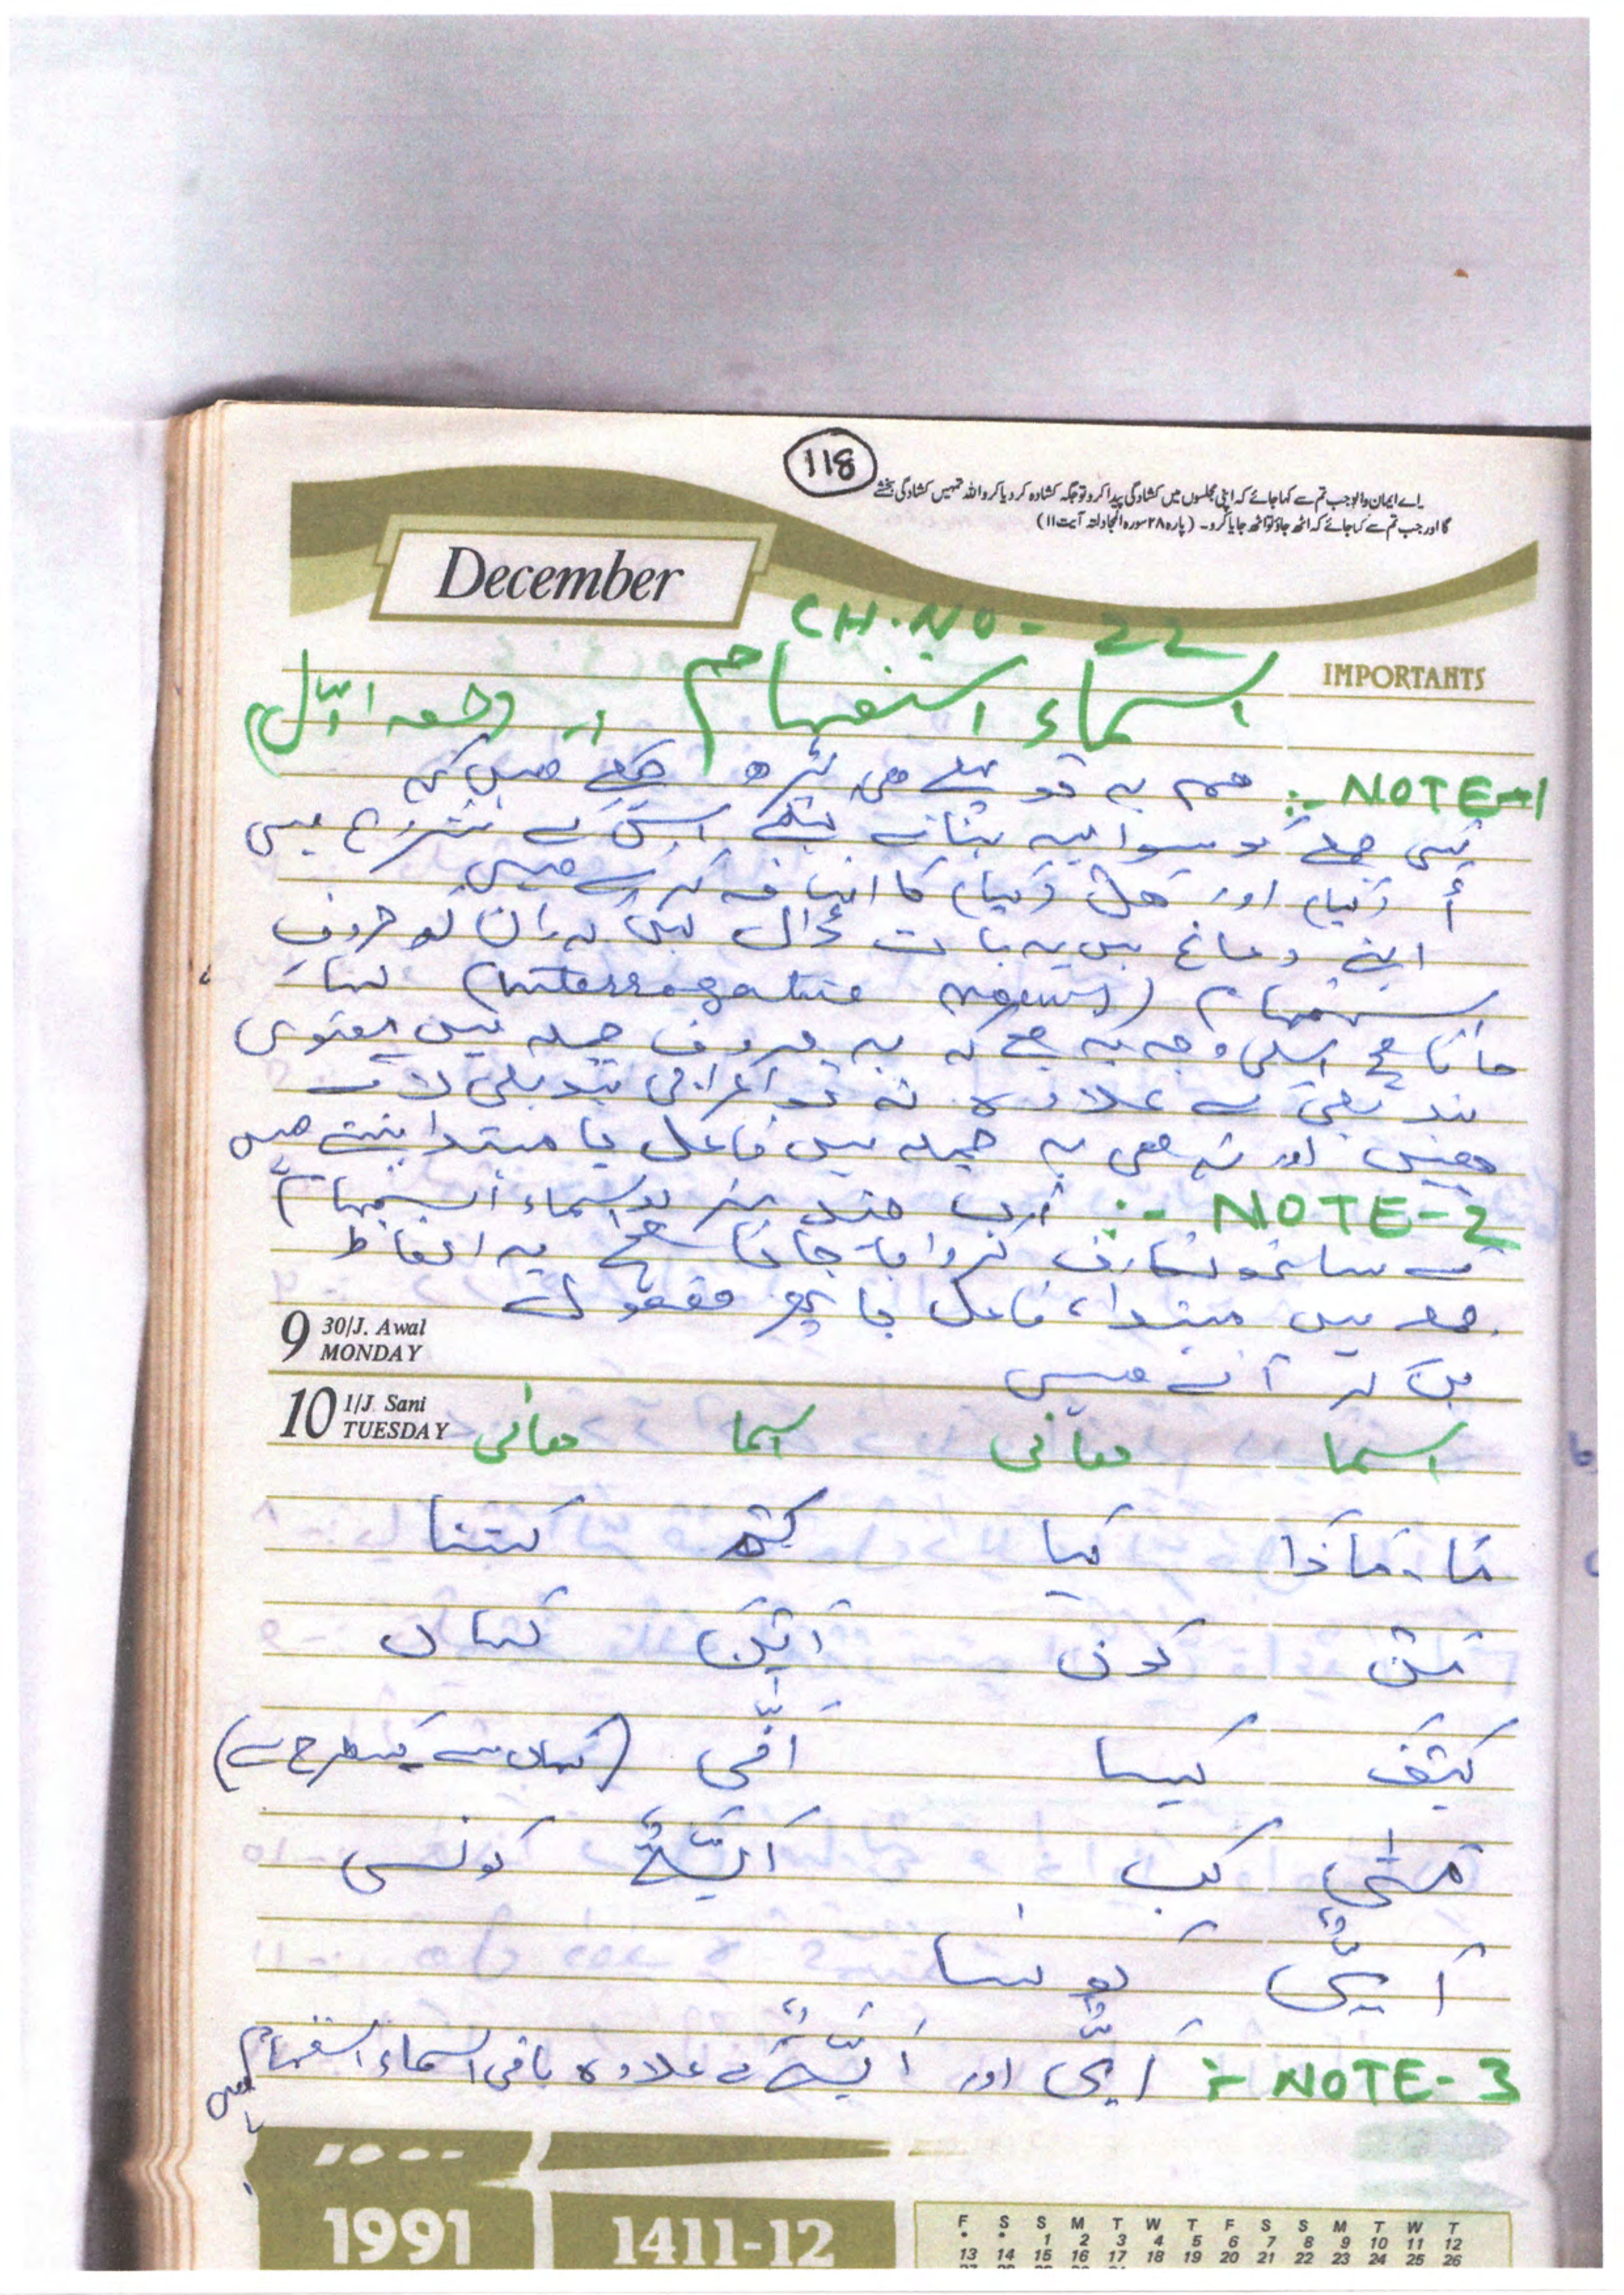 118
اے ایمان والو جب تم سے کہا جائے کہ اپنی مجلسوں میں کشادگی پیدا کرو تو جگہ کشادہ کر دیا کرو اللہ تمہیں کشادگی بخشے
گا اور جب تم سے کہا جائے کہ اٹھ جاؤ تو اٹھ جایا کرو۔ (پارہ ۲۸ سورہ المجادلتہ آیت ۱۱)
December
CH.NO - 22
IMPORTANTS
اسماء استفہام (حصہ اوّل)
NOTE-1 :- ہم یہ تو پہلے ہی پڑھ چکے ہیں کہ
کسی جملے کو سوالیہ بنانے کیلئے اس کے شروع میں
أَ (کیا) اور ھَلْ (کیا) کا اضافہ کرتے ہیں
اپنے دماغ میں یہ بات ڈال لیں کہ ان کو حروف
استفہام (Interrogative nouns) کہا
جاتا ہے اسکی وجہ یہ ہے کہ یہ حروف جملہ میں معنوی
تبدیلی کے علاوہ نہ تو اعرابی تبدیلی لاتے
ہیں اور نہ ہی یہ جملہ میں فاعل یا مبتدا بنتے ہیں
NOTE-2 :- اسماء استفہام
سے ساتھ تعارف کروایا جاتا ہے یہ الفاظ
جملہ میں مبتدا، فاعل یا پھر مفعول
بن کر آتے ہیں
9 30/J. Awal
MONDAY
10 1/J. Sani
TUESDAY
اسما معانی اسما معانی
مَا، مَاذَا کیا کَمْ کتنا
مَنْ کون اَیْنَ کہاں
کَیْفَ کیسا اَنّٰی (کہاں سے کس طرح سے)
مَتٰی کب اَیَّۃٌ کونسی
اَیٌّ کونسا
NOTE-3 :- اَیٌّ اور اَیَّۃٌ کے علاوہ باقی اسماء استفہام
1991
1411-12
F S S M T W T F S S M T W T
1 2 3 4 5 6 7 8 9 10 11 12
13 14 15 16 17 18 19 20 21 22 23 24 25 26